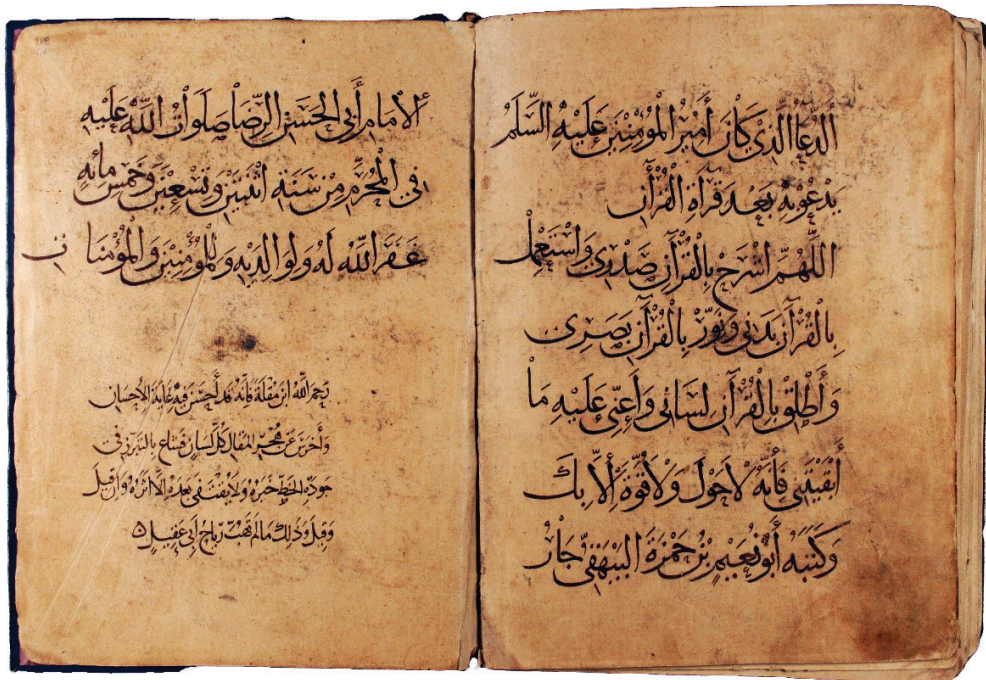 الدعا الذي كان أمير المؤمنين عليه السلم
يدعو به بعد قرآة القرآن
اللهم اشرح بالقرآن صدري واستعمل
بالقرآن بدني ونور بالقرآن بصري
وأطلق بالقرآن لساني وأعني عليه ما
أبقيتني فإنه لا حول ولا قوة إلا بك
وكتبه أبو نعيم بن حمزة البيهقي جار
الامام أبي الحسن الرضا صلوات الله عليه
في المحرم من سنة اثنتين وتسعين وخمس مائه
غفر الله له ولوالديه وللمؤمنين والمؤمنات
رحم الله ابن مقلة فإنه قد أحسن فيه غاية الاحسان
وأخرس عن المقال كل لسان
جودة الخط خبره ولا يقتفى بعده إلا اثره وان قيل
وقيل وذلك ما لم تهب رياح ابي عقيل